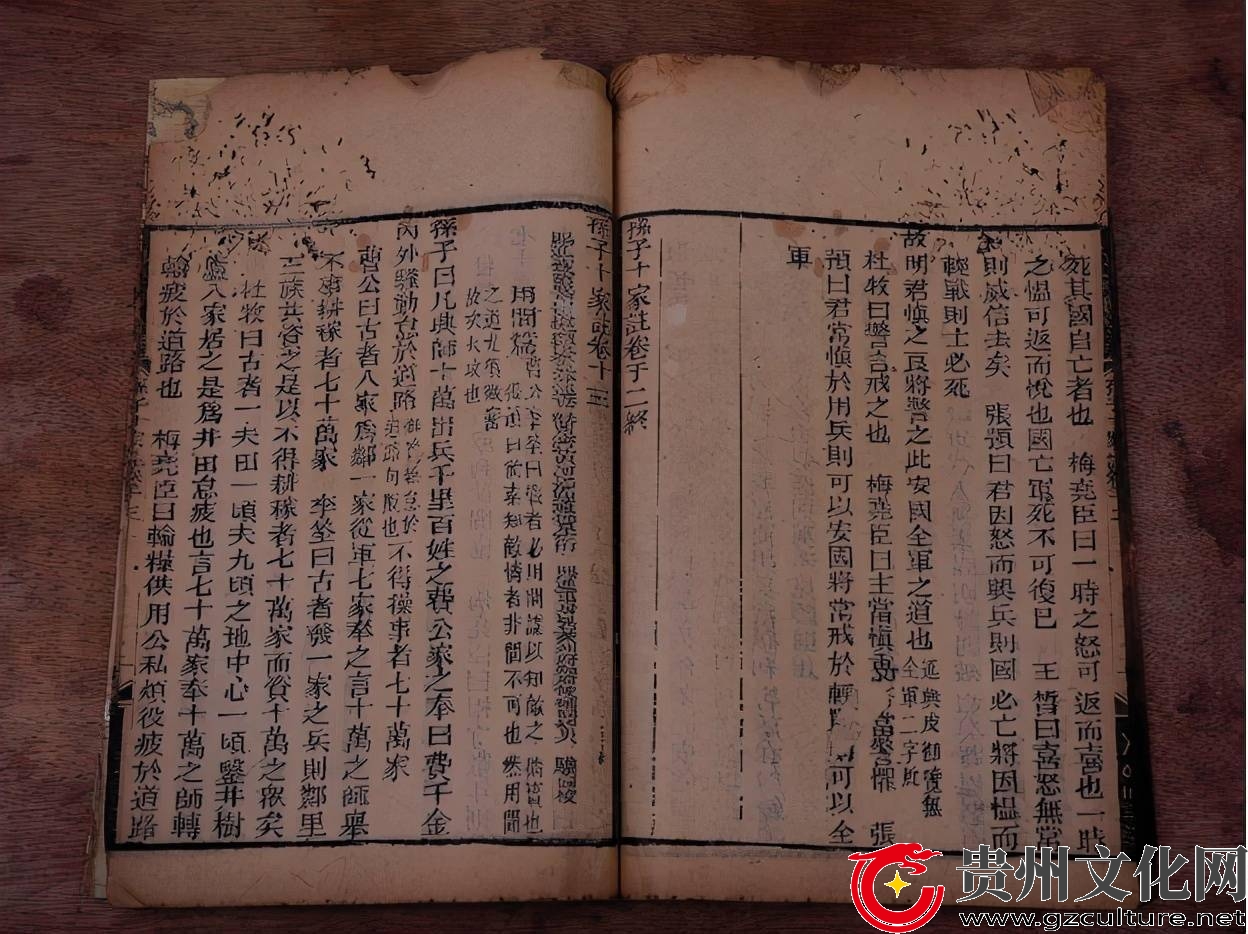 死其國自亡者也　梅堯臣曰一時之怒可返而喜也一時
之愠可返而悅也國亡軍死不可復已　王晳曰喜怒無常
則威信去矣　張預曰君因怒而興兵則國必亡將因愠而
輕戰則士必死
故明君慎之良將警之此安國全軍之道也
通典皮御覽無
全軍二字
杜牧曰警言戒之也　梅堯臣曰主當慎重將當警懼　張
預曰君常慎於用兵則可以安國將常戒於輕戰則可以全
軍
孫子十家註卷十二終
孫子十家註卷十三
用間篇
曹公李筌曰戰者必用間諜以知敵之
實也
張預曰欲素知敵情者非間不可也然用間
之道尤須微密
故次火攻也
孫子曰凡興師十萬出兵千里百姓之費公家之奉日費千金
內外騷動怠於道路
不得操事者七十萬家
曹公曰古者八家爲鄰一家從軍七家奉之言十萬之師舉
不事耕稼者七十萬家　李筌曰古者發一家之兵則鄰里
三族共資之是以不得耕稼者七十萬家而資十萬之衆矣
杜牧曰古者一夫田一頃夫九頃之地中心一頃鑿井樹
廬八家居之是爲井田怠疲也言七十萬家奉十萬之師轉
輸疲於道路也　梅堯臣曰輸糧供用公私煩役疲於道路
贵州文化网
www.gzculture.net